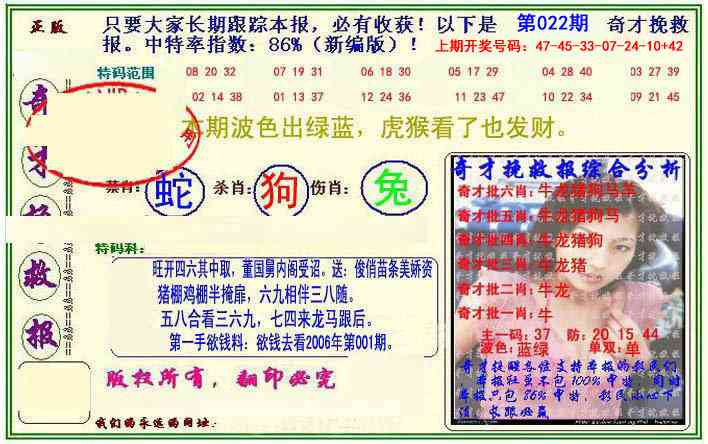 正版
只要大家长期跟踪本报，必有收获！以下是 第022期 奇才挽救
报。中特率指数：86%（新编版）！ 上期开奖号码：47-45-33-07-24-10+42
特码范围
08 20 32 07 19 31 06 18 30 05 17 29 04 28 40 03 27 39
02 14 38 01 13 37 12 24 36 11 23 47 10 22 34 09 21 45
本期波色出绿蓝，虎猴看了也发财。
奇
才
救
报
禁肖：蛇 杀肖：狗 伤肖：兔
特码科：
旺开四六其中取，董国舅内阁受诏。送：俊俏苗条美娇资
猪棚鸡棚半掩扉，六九相伴三八随。
五八合看三六九，七四来龙马跟后。
第一手欲钱料：欲钱去看2006年第001期。
版权所有，翻印必究
我们的永远的网址：
奇才挽救报综合分析
奇才批六肖：牛龙猪狗马羊
奇才批五肖：牛龙猪狗马
奇才批四肖：牛龙猪狗
奇才批三肖：牛龙猪
奇才批二肖：牛龙
奇才批一肖：牛
主一码：37 防：20 15 44
波色：蓝绿 单双：单
奇才提醒各位支持本报的彩民们
本报虽不包100%中特，同时
本报只包86%中特，彩民小心下
注，求跟必赢